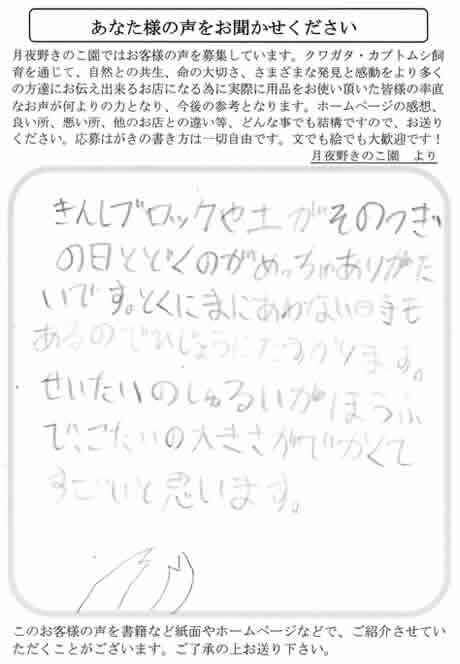 あなた様の声をお聞かせください
月夜野きのこ園ではお客様の声を募集しています。クワガタ・カブトムシ飼
育を通じて、自然との共生、命の大切さ、さまざまな発見と感動をより多く
の方達にお伝え出来るお店になる為に実際に用品をお使い頂いた皆様の率直
なお声が何よりの力となり、今後の参考となります。ホームページの感想、
良い所、悪い所、他のお店との違い等、どんな事でも結構ですので、お送り
ください。応募はがきの書き方は一切自由です。文でも絵でも大歓迎です！
月夜野きのこ園　より
きんしブロックや土がそのつぎ
の日とどくのがめっちゃありがた
いです。とくにまにあわない時も
あるのでひじょうにたすかります。
せいたいのしゅるいがほうふ
で、こたいの大きさがでかくて
すごいと思います。
このお客様の声を書籍など紙面やホームページなどで、ご紹介させてい
ただくことがございます。ご了承の上お送り下さい。